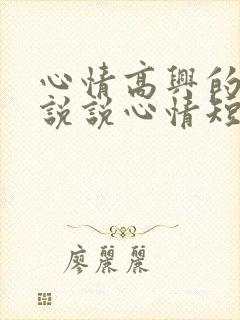 心情高興的
說說心情短
廖麗麗